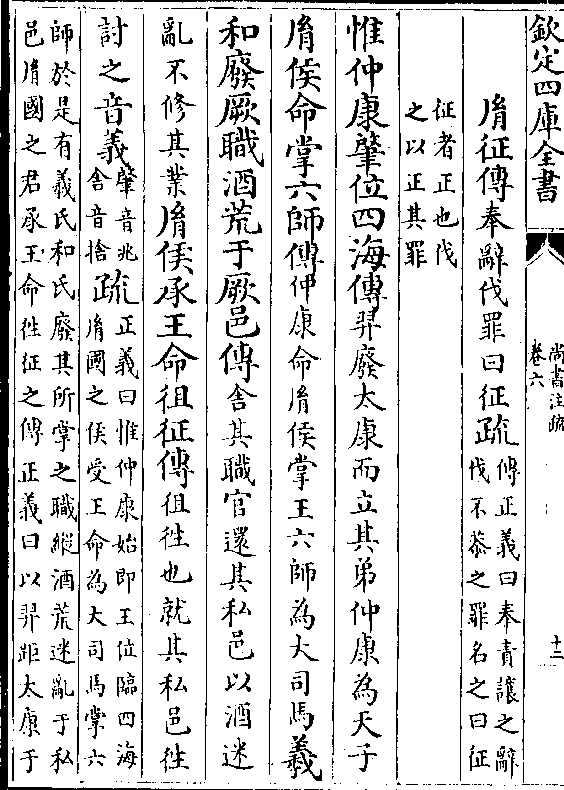 欽定四庫全書
尚書注疏
卷六
十二
胤征傳奉辭伐罪曰征疏傳正義曰奉責讓之辭
伐不恭之罪名之曰征
征者正也伐
之以正其罪
惟仲康肇位四海傳羿廢太康而立其弟仲康為天子
胤侯命掌六師傳仲康命胤侯掌王六師為大司馬羲
和廢厥職酒荒于厥邑傳舍其職官還其私邑以酒迷
亂不修其業胤侯承王命徂征傳徂往也就其私邑往
討之音義肇音兆
舍音捨疏正義曰惟仲康始即王位臨四海
胤國之侯受王命為大司馬掌六
師於是有羲氏和氏廢其所掌之職縱酒荒迷亂于私
邑胤國之君承王命往征之傳正義曰以羿距太康于